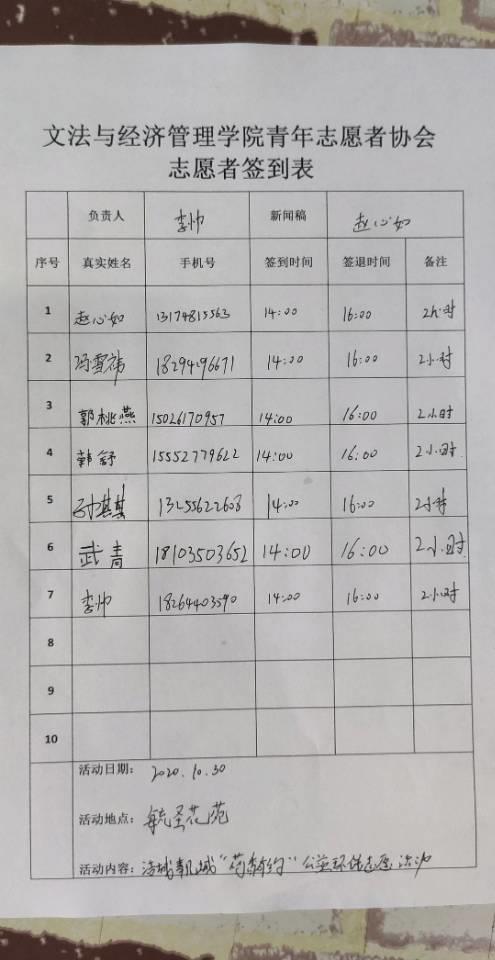 文法与经济管理学院青年志愿者协会
志愿者签到表
负责人 李帅 新闻稿 赵心如
序号 真实姓名 手机号 签到时间 签退时间 备注
1 赵心如 13174815563 14:00 16:00 2小时
2 冯雪祎 18294296671 14:00 16:00 2小时
3 郭桃燕 15026170957 14:00 16:00 2小时
4 韩舒 15552779622 14:00 16:00 2小时
5 孙某某 13255622608 14:00 16:00 2小时
6 武青 18103503652 14:00 16:00 2小时
7 李帅 18264403590 14:00 16:00 2小时
8
9
10
活动日期: 2020.10.30
活动地点: 毓圣花苑
活动内容: 公益环保志愿活动